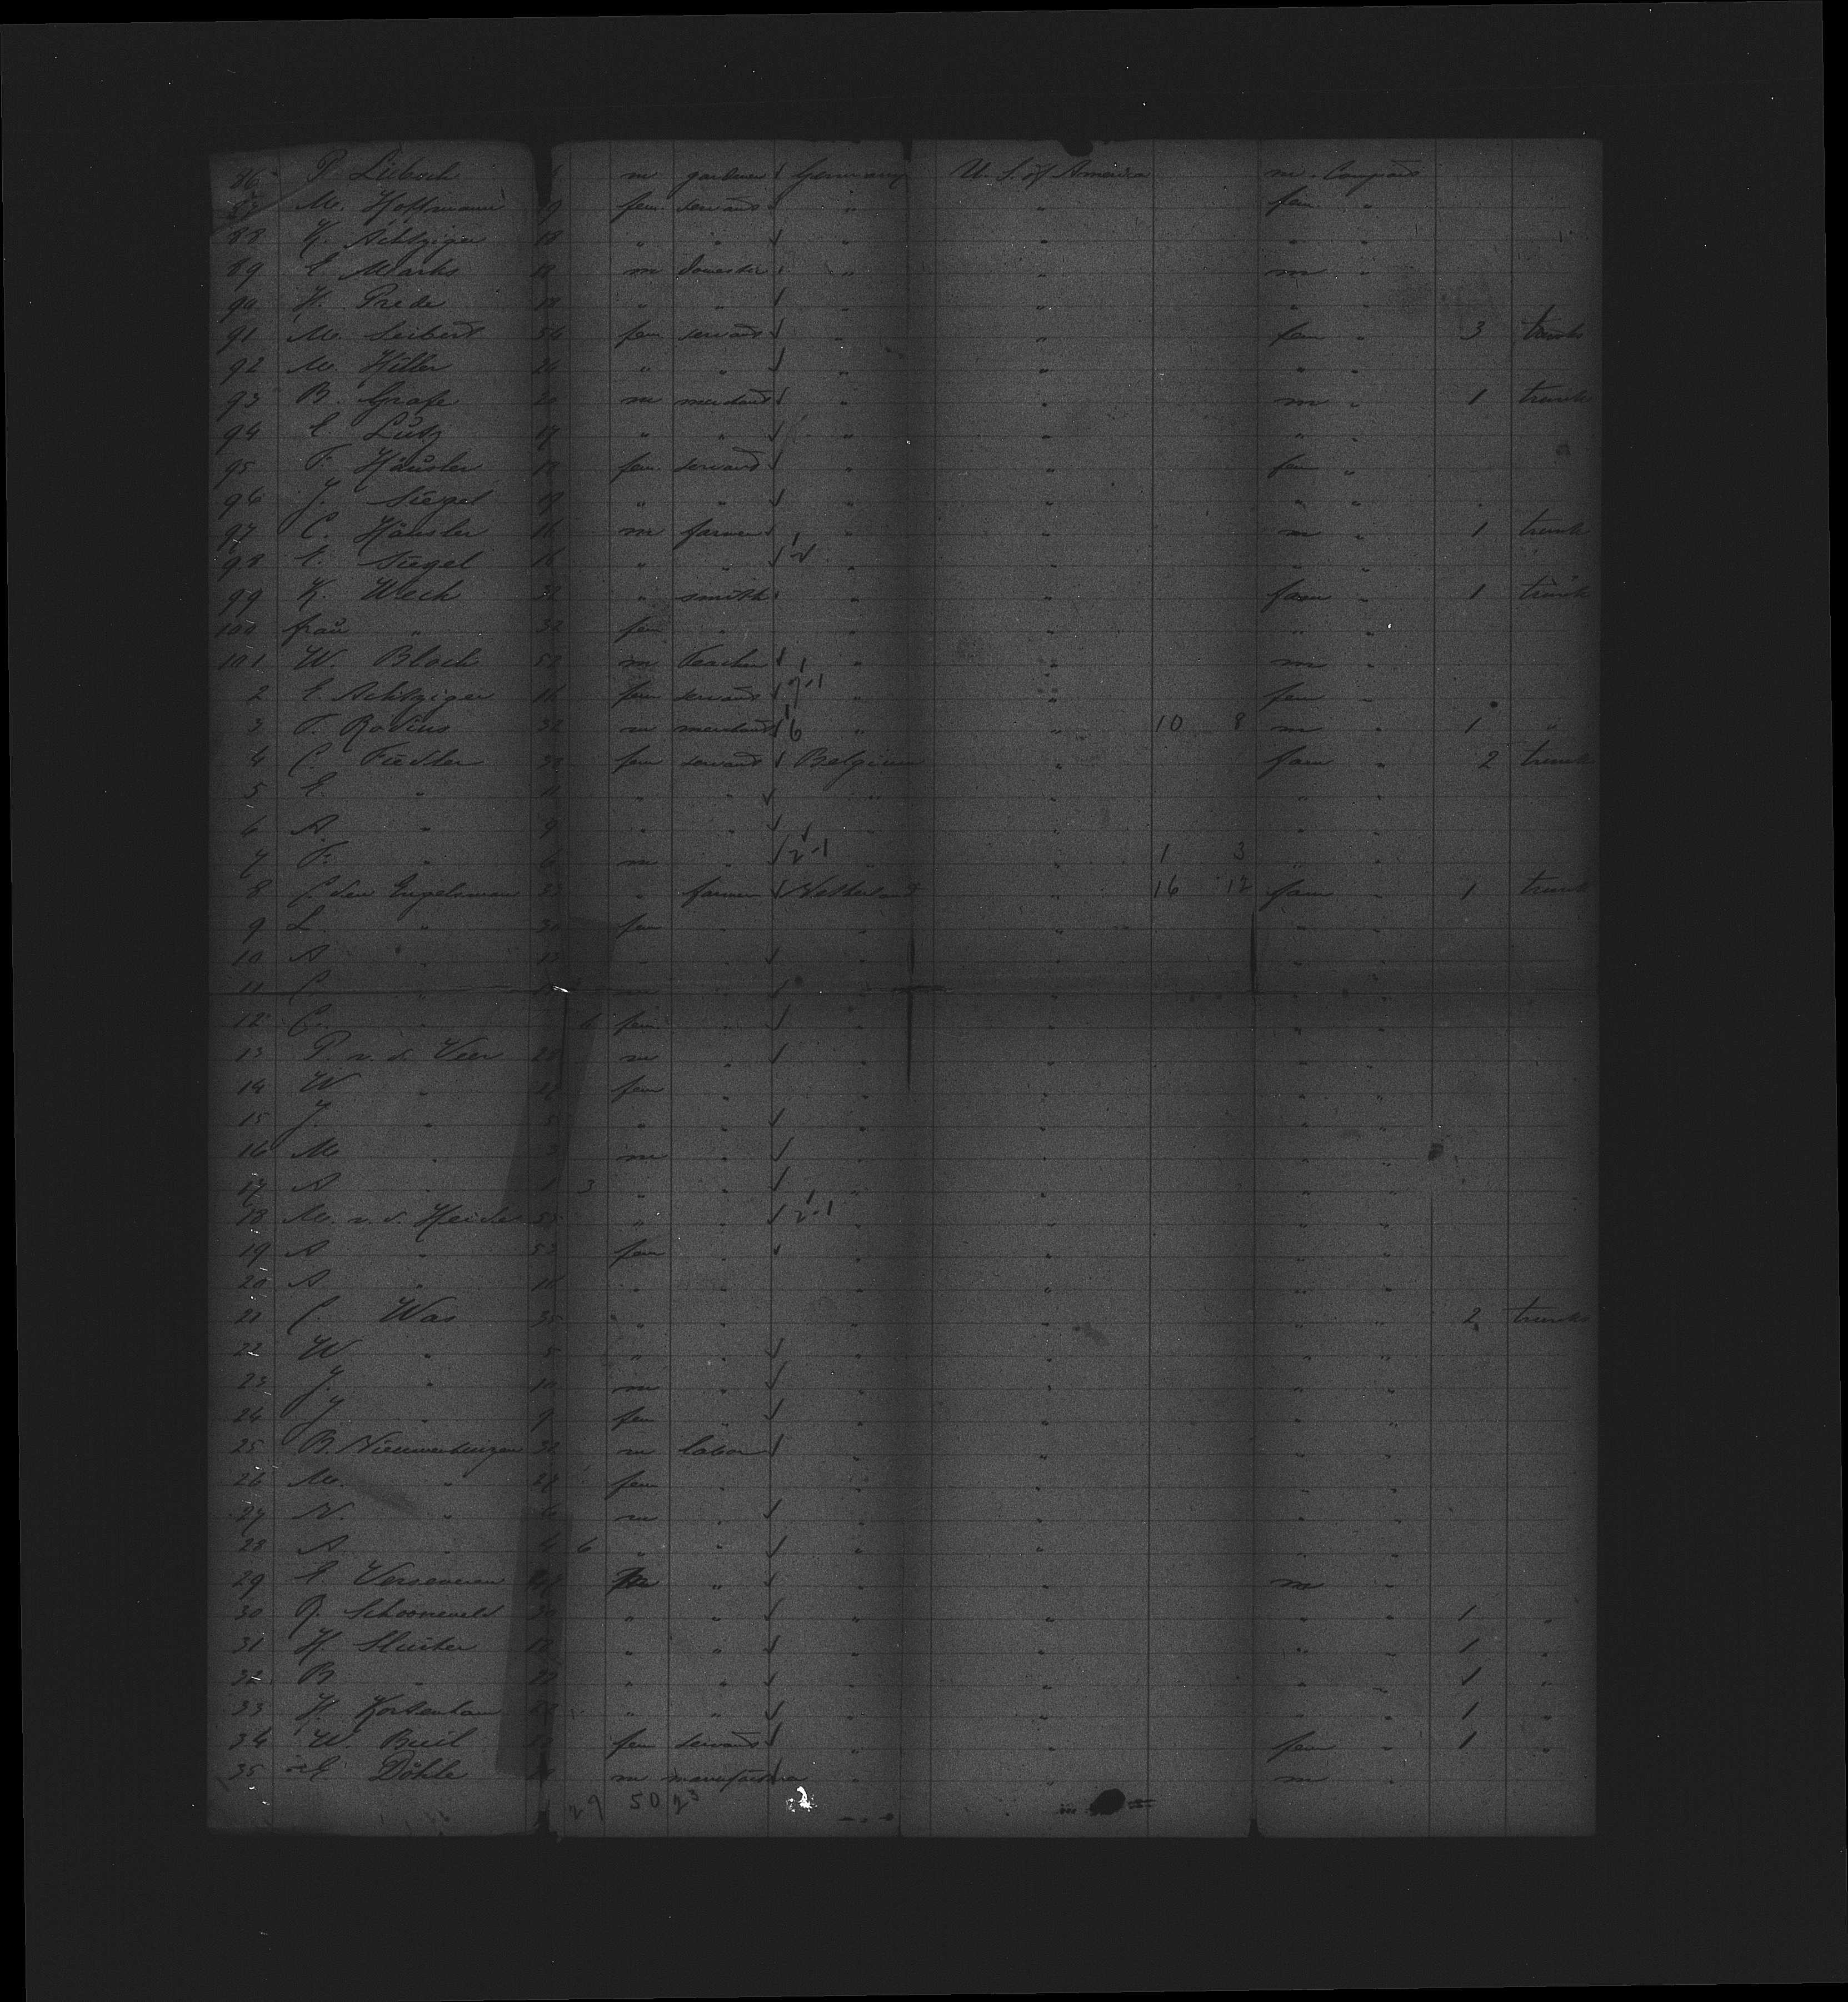 86 P. Lübech m gardener Germany U. S. of America m. Compard
M. Hoffmann 19 fem. servant " " fem. "
88 K. Achtziger 18 " " " " " "
89 E. Marks 18 m domestic " " m "
90 H. Prede 18 " " " " "
91 M. Seibert 56 fem servant " " fem " 3 trunks
92 M. Hiller 26 " " " " " "
93 B. Grafe 20 m merchant " " m " 1 trunk
94 E. Lutz 17 " " " " " "
95 F. Häusler 18 fem. servant " " fem "
96 J. Siegel 19 " " " " " "
97 C. Häusler 16 m farmer " " m " 1 trunk
98 E. Siegel 16 " " 2 " " " "
99 K. Weck " smith " " fam " 1 trunk
100 frau " 32 fem " " " " "
101 W. Bloch 52 m Teacher " " m "
2 E. Achtziger 16 fem servant 7-1 " " fem "
3 F. Rodius 32 m merchant 6 " " 10 8 m " 1 "
4 C. Fiedler fem servant Belgium " fam " 2 trunk
5 E. " 11 " " " " " "
6 A. " 9 " " " " " "
7 F. " 6 m " 2-1 " " 1 3 " "
8 C. den Engelsman 33 " farmer Netherland " 16 12 fam " 1 trunk
9 L. " 30 fem " " " " "
10 A " 13 " " " " " "
11 C " m " " " " "
12 C. " 6 fem " " " " "
13 P. v. d. Veer 28 m " " " " "
14 W " fem " " " " "
15 J. " 5 " " " " " "
16 M " 3 m " " " " "
17 A " 1 3 " " " " " "
18 M. v. d. Heide 55 " " 2-1 " " " "
19 A " 53 fem " " " " "
20 A " " " " " " "
21 C. Was 35 " " " " " " 2 trunks
22 W " 5 " " " " " "
23 J. " 10 m " " " " "
24 J " 9 fem " " " " "
25 B. Nieuwenhuizen m labor " " " "
26 M. " 27 fem " " " " "
27 N. " 6 m " " " " "
28 A " 4 6 " " " " " "
29 E. m " " " m "
30 R. Schooneveld " " " " " " 1 "
31 H Sluiter 18 " " " " " " 1 "
32 B " 22 " " " " " " 1 "
33 H. " " " " " " 1 "
34 W. Buil fem servant " " fem " 1 "
35 E. Döhle m " " m "
27 50 23